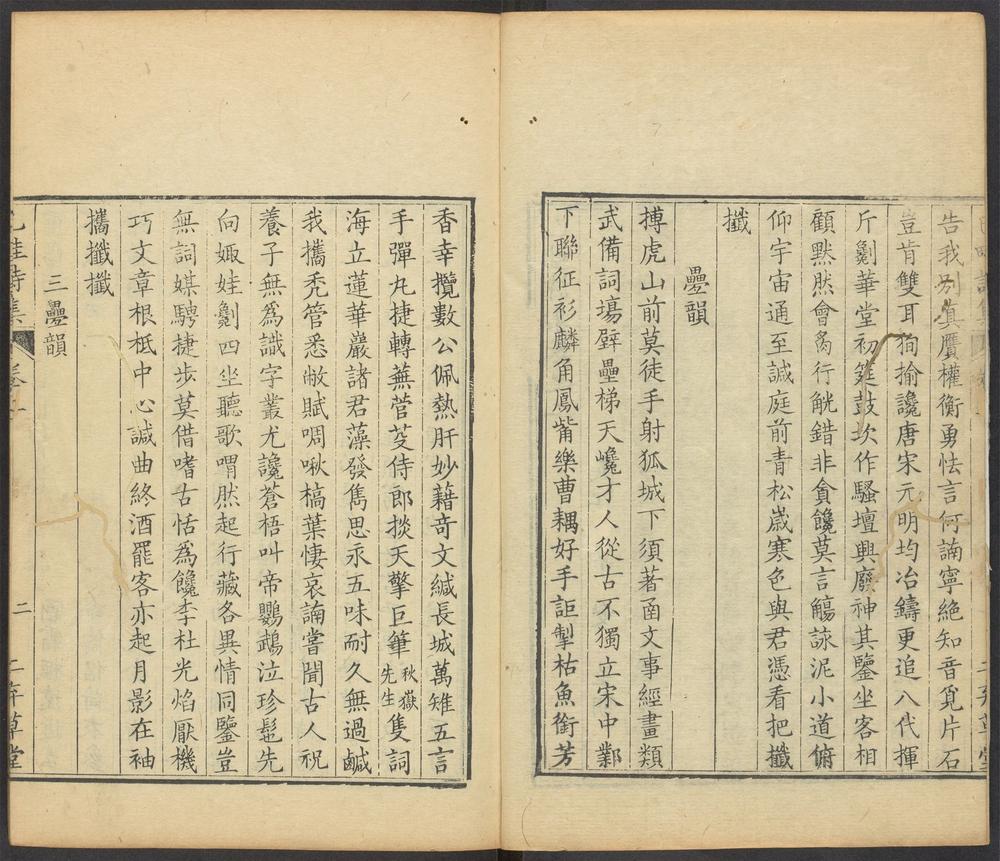 告我別真贋權衡勇怯言何諵寧絶知音覓片石
豈肯雙耳狥揄讒唐宋元明均冶鑄更追八代揮
斤劖華堂初筵鼓坎作騷壇興廢神其鑒坐客相
顧黙然會觴行觥錯非貪饞莫言觴詠泥小道俯
仰宇宙通至諴庭前青松嵗寒色與君憑看把攕
攕
疊韻
搏虎山前莫徒手射狐城下須著圅文事經畫類
武備詞塲壁壘梯天巉才人從古不獨立宋中鄴
下聯征衫麟角鳳觜樂曹耦好手詎掣枯魚銜芳
香幸攬數公佩熱肝妙藉奇文緘長城萬雉五言
手彈丸捷轉蕪菅芟侍郎掞天擎巨筆秋嶽先生隻詞
海立蓮華巖諸君藻發雋思永五味耐久無過鹹
我攜禿管悉敝賦啁啾槁葉悽哀諵嘗聞古人祝
養子無為識字叢尤讒蒼梧叫帝鸚鵡泣珍髢先
向娵娃劖四坐聽歌喟然起行藏各異情同鑒豈
無詞媒騁捷步莫借嗜古恬為饞李杜光焰厭機
巧文章根柢中心諴曲終酒罷客亦起月影在袖
攜攕攕
三疊韻
二